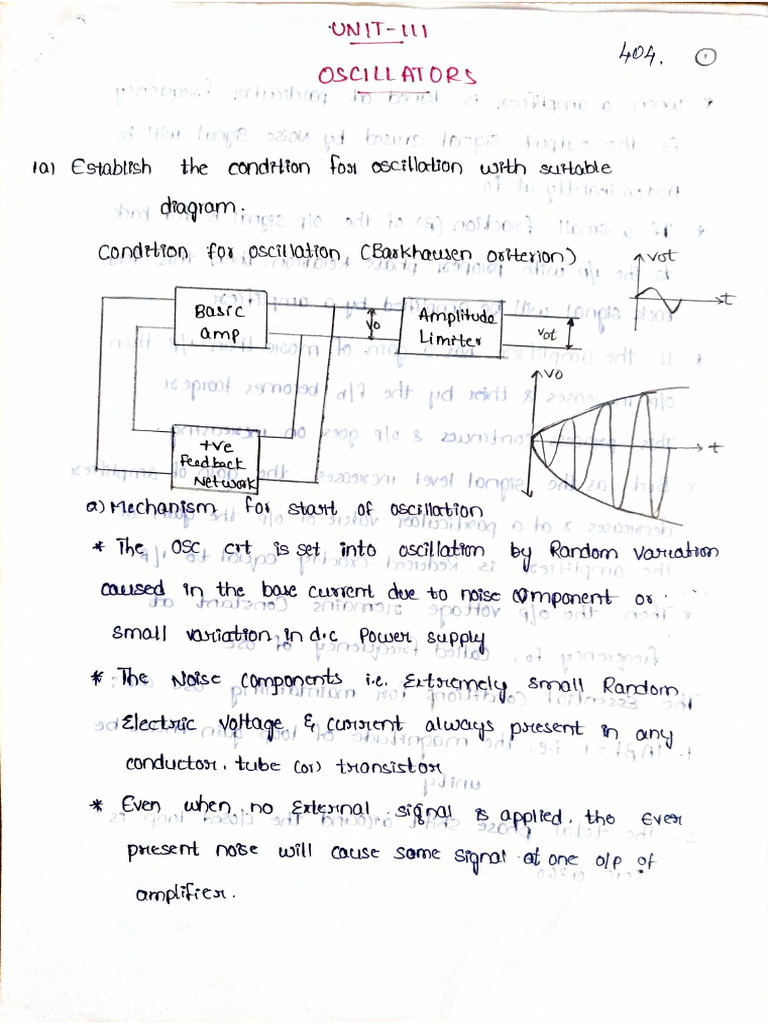 UNIT-III
404. 1
OSCILLATORS
1a) Establish the condition for oscillation with suitable
diagram.
Condition for oscillation (Barkhausen criterion)
Vot
t
Basic
amp
Vo
Amplitude
Limiter
Vot
Vo
t
+ve
Feedback
Network
a) Mechanism for start of oscillation
* The osc crt is set into oscillation by Random variation
caused in the base current due to noise component or
small variation in d.c Power supply
* The Noise components i.e. Extremely small Random
Electric voltage & current always present in any
conductor, tube (or) transistor
* Even when no External signal is applied, the Ever
present noise will cause some signal at one o/p of
amplifier.